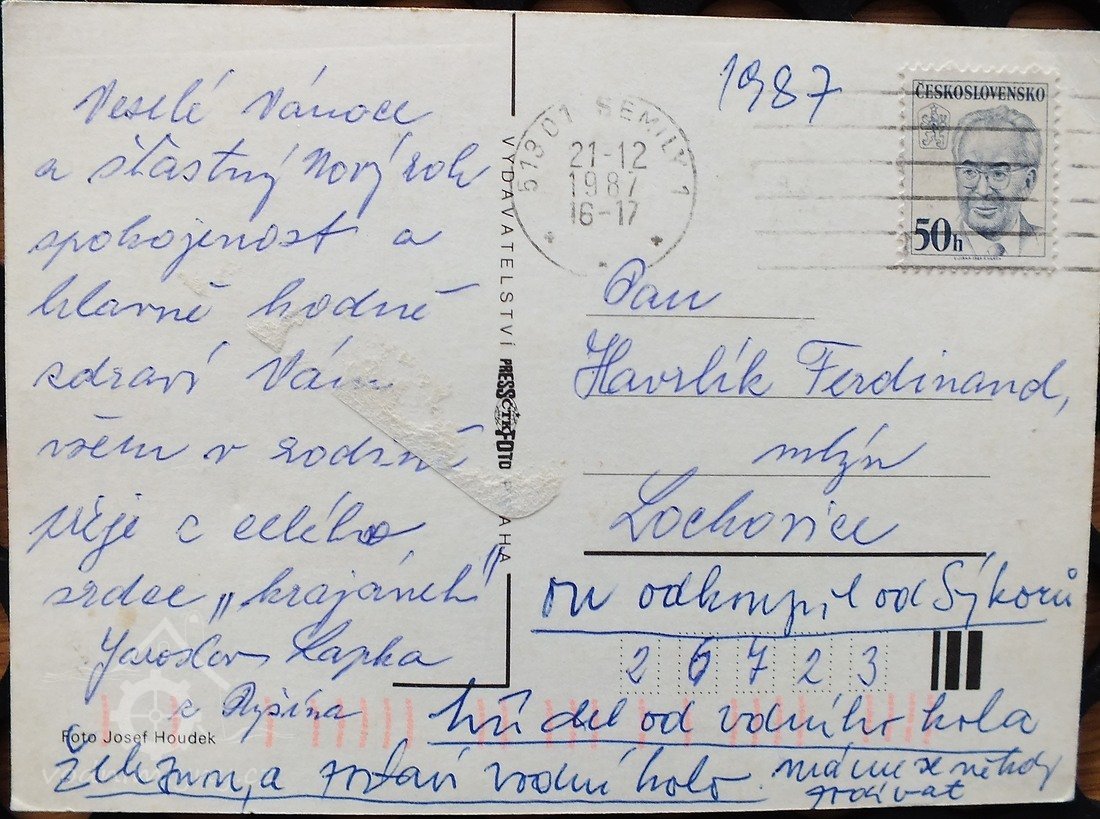 Veselé Vánoce
a šťastný Nový rok
spokojenost a
hlavně hodně
zdraví Vám
všem v rodině
přeje z celého
srdce „krajánek"
Jaroslav Kapka
z
Foto Josef Houdek
VYDAVATELSTVÍ PRESSFOTO PRAHA
ČTK
1987
513 01 SEMILY 1
21-12
1987
16-17
ČESKOSLOVENSKO
50h
Pan
Havrlík Ferdinand,
mlýn
Lochovice
on odkoupil od Sýkorů
267 23
hřídel od vodního kola
železnou, a postaví vodní kolo. máme se někdy
podívat